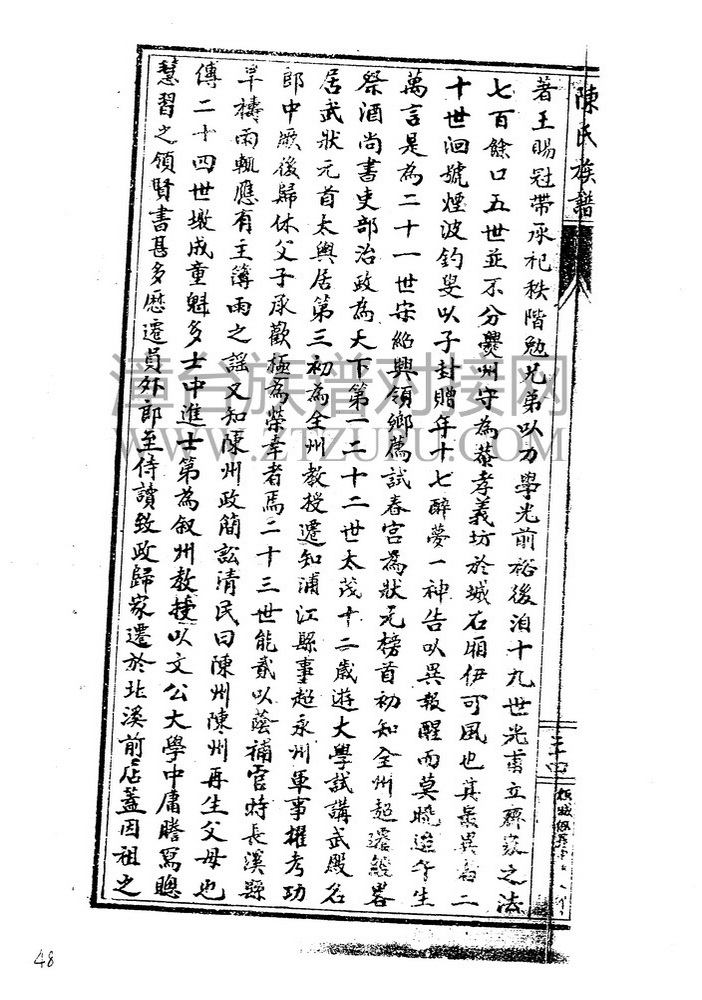 陳氏族譜
著王賜冠帶承祀秩階勉兄弟以力學光前裕後洎十九世光甫立齊家之法
七百餘口五世並不分爨州守為蓋孝義坊於城右廂伊可風也其最異者二
十世洄號煙波釣叟以子封贈年十七醉夢一神告以異報醒而莫曉迨午生
萬言是為二十一世宋紹興領鄉薦試春宮為狀元榜首初知全州超遷
祭酒尚書吏部治政為天下第一二十二世太茂十二歲遊大學試講武殿名
居武狀元首太與居第三初為全州教授遷知浦江縣事超永州軍事擢考功
郎中厥後歸休父子承歡極為榮幸者焉二十三世能貳以蔭補官時長溪縣
旱禱雨輒應有主簿雨之謠又知陳州政簡訟清民曰陳州陳州再生父母也
傳二十四世墩成童魁多士中進士第為叙州教授以文公大學中庸謄寫聰
慧習之領賢書甚多歷遷員外郎至侍讀致政歸家遷於北溪前店蓋因祖之
三十四
漳台族谱对接网
WWW.ZTZUPU.COM
48